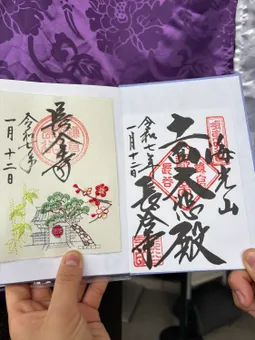 海光山
十一面大悲殿
長谷寺
令和七年
一月十二日
長谷寺
令和七年
一月十二日